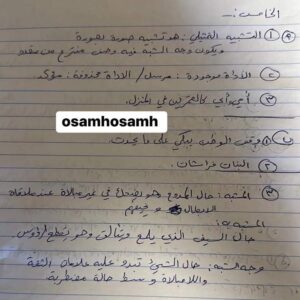 الخامس :-
١ التشبيه التمثيلي : هو تشبيه صورة بصورة
ويكون وجه الشبه فيه وصف منتزع من متعدد
٢ الأداة موجودة : مرسل / الأداة محذوفة : مؤكد
٣ أمي أبي كالقمرين في المنزل .
osamhosamh
١ وقف الوطن يبكي على ما يحدث .
٢ البنات فراشات
٣ المشبه : حال الممدوح وهو يضحك في غير مبالاة عند ملاقاة
الأبطال
المشبه به :
حال السيف الذي يلمع ويتألق وهو يقطع الرؤوس
وجه الشبه : حال الشيء تبدو عليه علامات الثقة
واللامبالاة وسط حالة مضطربة